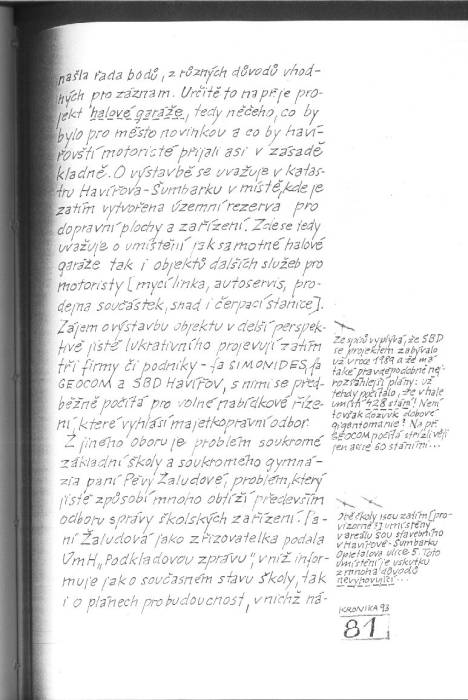 našla řada bodů, z různých důvodů vhod-
ných pro záznam. Určitě to např. je pro-
jekt halové garáže, tedy něčeho, co by
bylo pro město novinkou a co by haví-
rovští motoristé přijali asi v zásadě
kladně. O výstavbě se uvažuje v katas-
tru Havířova-Šumbarku v místě, kde je
zatím vytvořena územní rezerva pro
dopravní plochy a zařízení. Zde se tedy
uvažuje o umístění jak samotné halové
garáže tak i objektů dalších služeb pro
motoristy [mycí linka, autoservis, pro-
dejna součástek, snad i čerpací stanice].
Zájem o výstavbu objektu v delší perspek-
tivě jistě lukrativního projevují zatím
tři firmy či podniky - fa SIMONIDES, fa
GEOCOM a SBD HAVÍŘOV, s nimi se před-
běžně počítá pro volné nabídkové říze-
ní, které vyhlásí majetkoprávní odbor.
Z jiného oboru je problém soukromé
základní školy a soukromého gymná-
zia paní Pévy Žaludové, problém, který
jistě způsobí mnoho obtíží především
odboru správy školských zařízení. Pa-
ní Žaludová jako zřizovatelka podala
ÚmH „Podkladovou zprávu“, v níž infor-
muje jako současném stavu školy, tak
i o plánech pro budoucnost, v nichž ná-
Ze spisů vyplývá, že SBD
se projektem zabývalo
už v roce 1989 a že má
také pravděpodobně nej-
rozsáhlejší plány: už
tehdy počítalo, že v hale
umístí 428 stání! Není
to však dozvuk dobové
gigantomanie? Např.
GEOCOM počítá střízlivěji
jen asi se 60 stáními...
Obě školy jsou zatím [pro-
vizorně?] umístěny
v areálu SOU stavebního
v Havířově-Šumbarku
Opletalova ulice 5. Toto
umístění je vskutku
z mnoha důvodů
nevyhovující...
KRONIKA 93
81